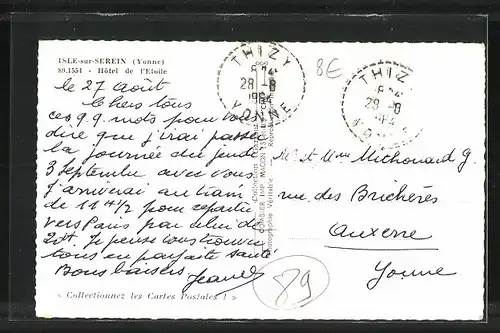 ISLE-sur-SEREIN (Yonne)
89.1551 - Hôtel de l'Etoile
le 27 août
Chers tous
ces q.q. mots pour vous
dire que j'irai passer
la journée du jeudi
3 Septembre avec vous
J'arriverai au train
de 11 h 1/2 pour repartir
vers Paris par celui de
Je pense vous trouver
tous en parfaite santé
Bons baisers
THIZY
28 -8
1964
YONNE
THIZY
28 -8
1964
YONNE
8€
COMBIER IMP. MACON
Photographie Véritable
Mr et Mme Michonard G
rue des Brichères
Auxerre
Yonne
89
« Collectionnez les Cartes Postales ! »